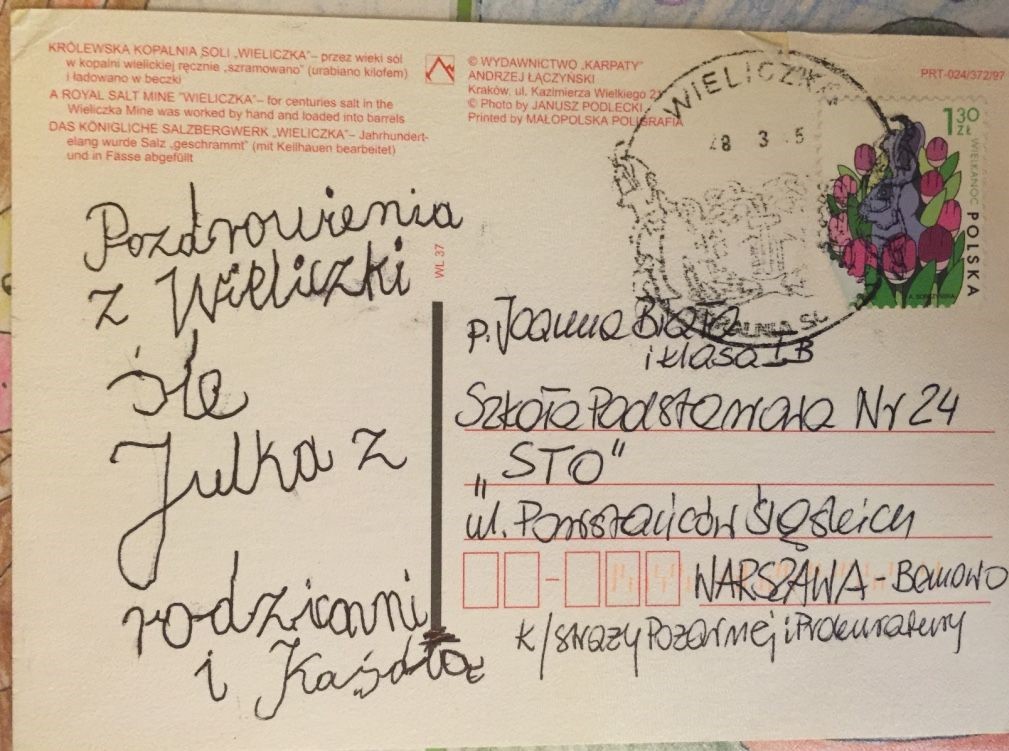 KRÓLEWSKA KOPALNIA SOLI „WIELICZKA” – przez wieki sól
w kopalni wielickiej ręcznie „szramowano” (urabiano kilofem)
i ładowano w beczki
A ROYAL SALT MINE "WIELICZKA" – for centuries salt in the
Wieliczka Mine was worked by hand and loaded into barrels
DAS KÖNIGLICHE SALZBERGWERK „WIELICZKA” – Jahrhundert-
elang wurde Salz „geschrammt” (mit Keilhauen bearbeitet)
und in Fässe abgefüllt
© WYDAWNICTWO „KARPATY”
ANDRZEJ ŁĄCZYŃSKI
Kraków, ul. Kazimierza Wielkiego
© Photo by JANUSZ PODLECKI
Printed by MAŁOPOLSKA POLIGRAFIA
PRT-024/372/97
WIELICZKA
28 3
1 30
ZŁ
WIELKANOC
POLSKA
WL 37
Pozdrowienia
z Wieliczki
śle
Julka z
rodzicami
i
p. Joanna Biała
i klasa I B
Szkoła Podstawowa Nr 24
„STO”
ul. Powstańców Śląskich
WARSZAWA - Bemowo
k/straży Pożarnej i Prokuratury